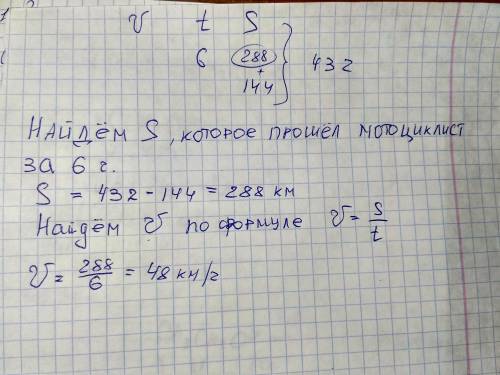 V t S
6 288 } 432
+
144
НАЙДЁМ S, которое прошёл мотоциклист
за 6 ч.
S = 432 - 144 = 288 км
Найдём V по формуле V = S/t
V = 288/6 = 48 км/ч